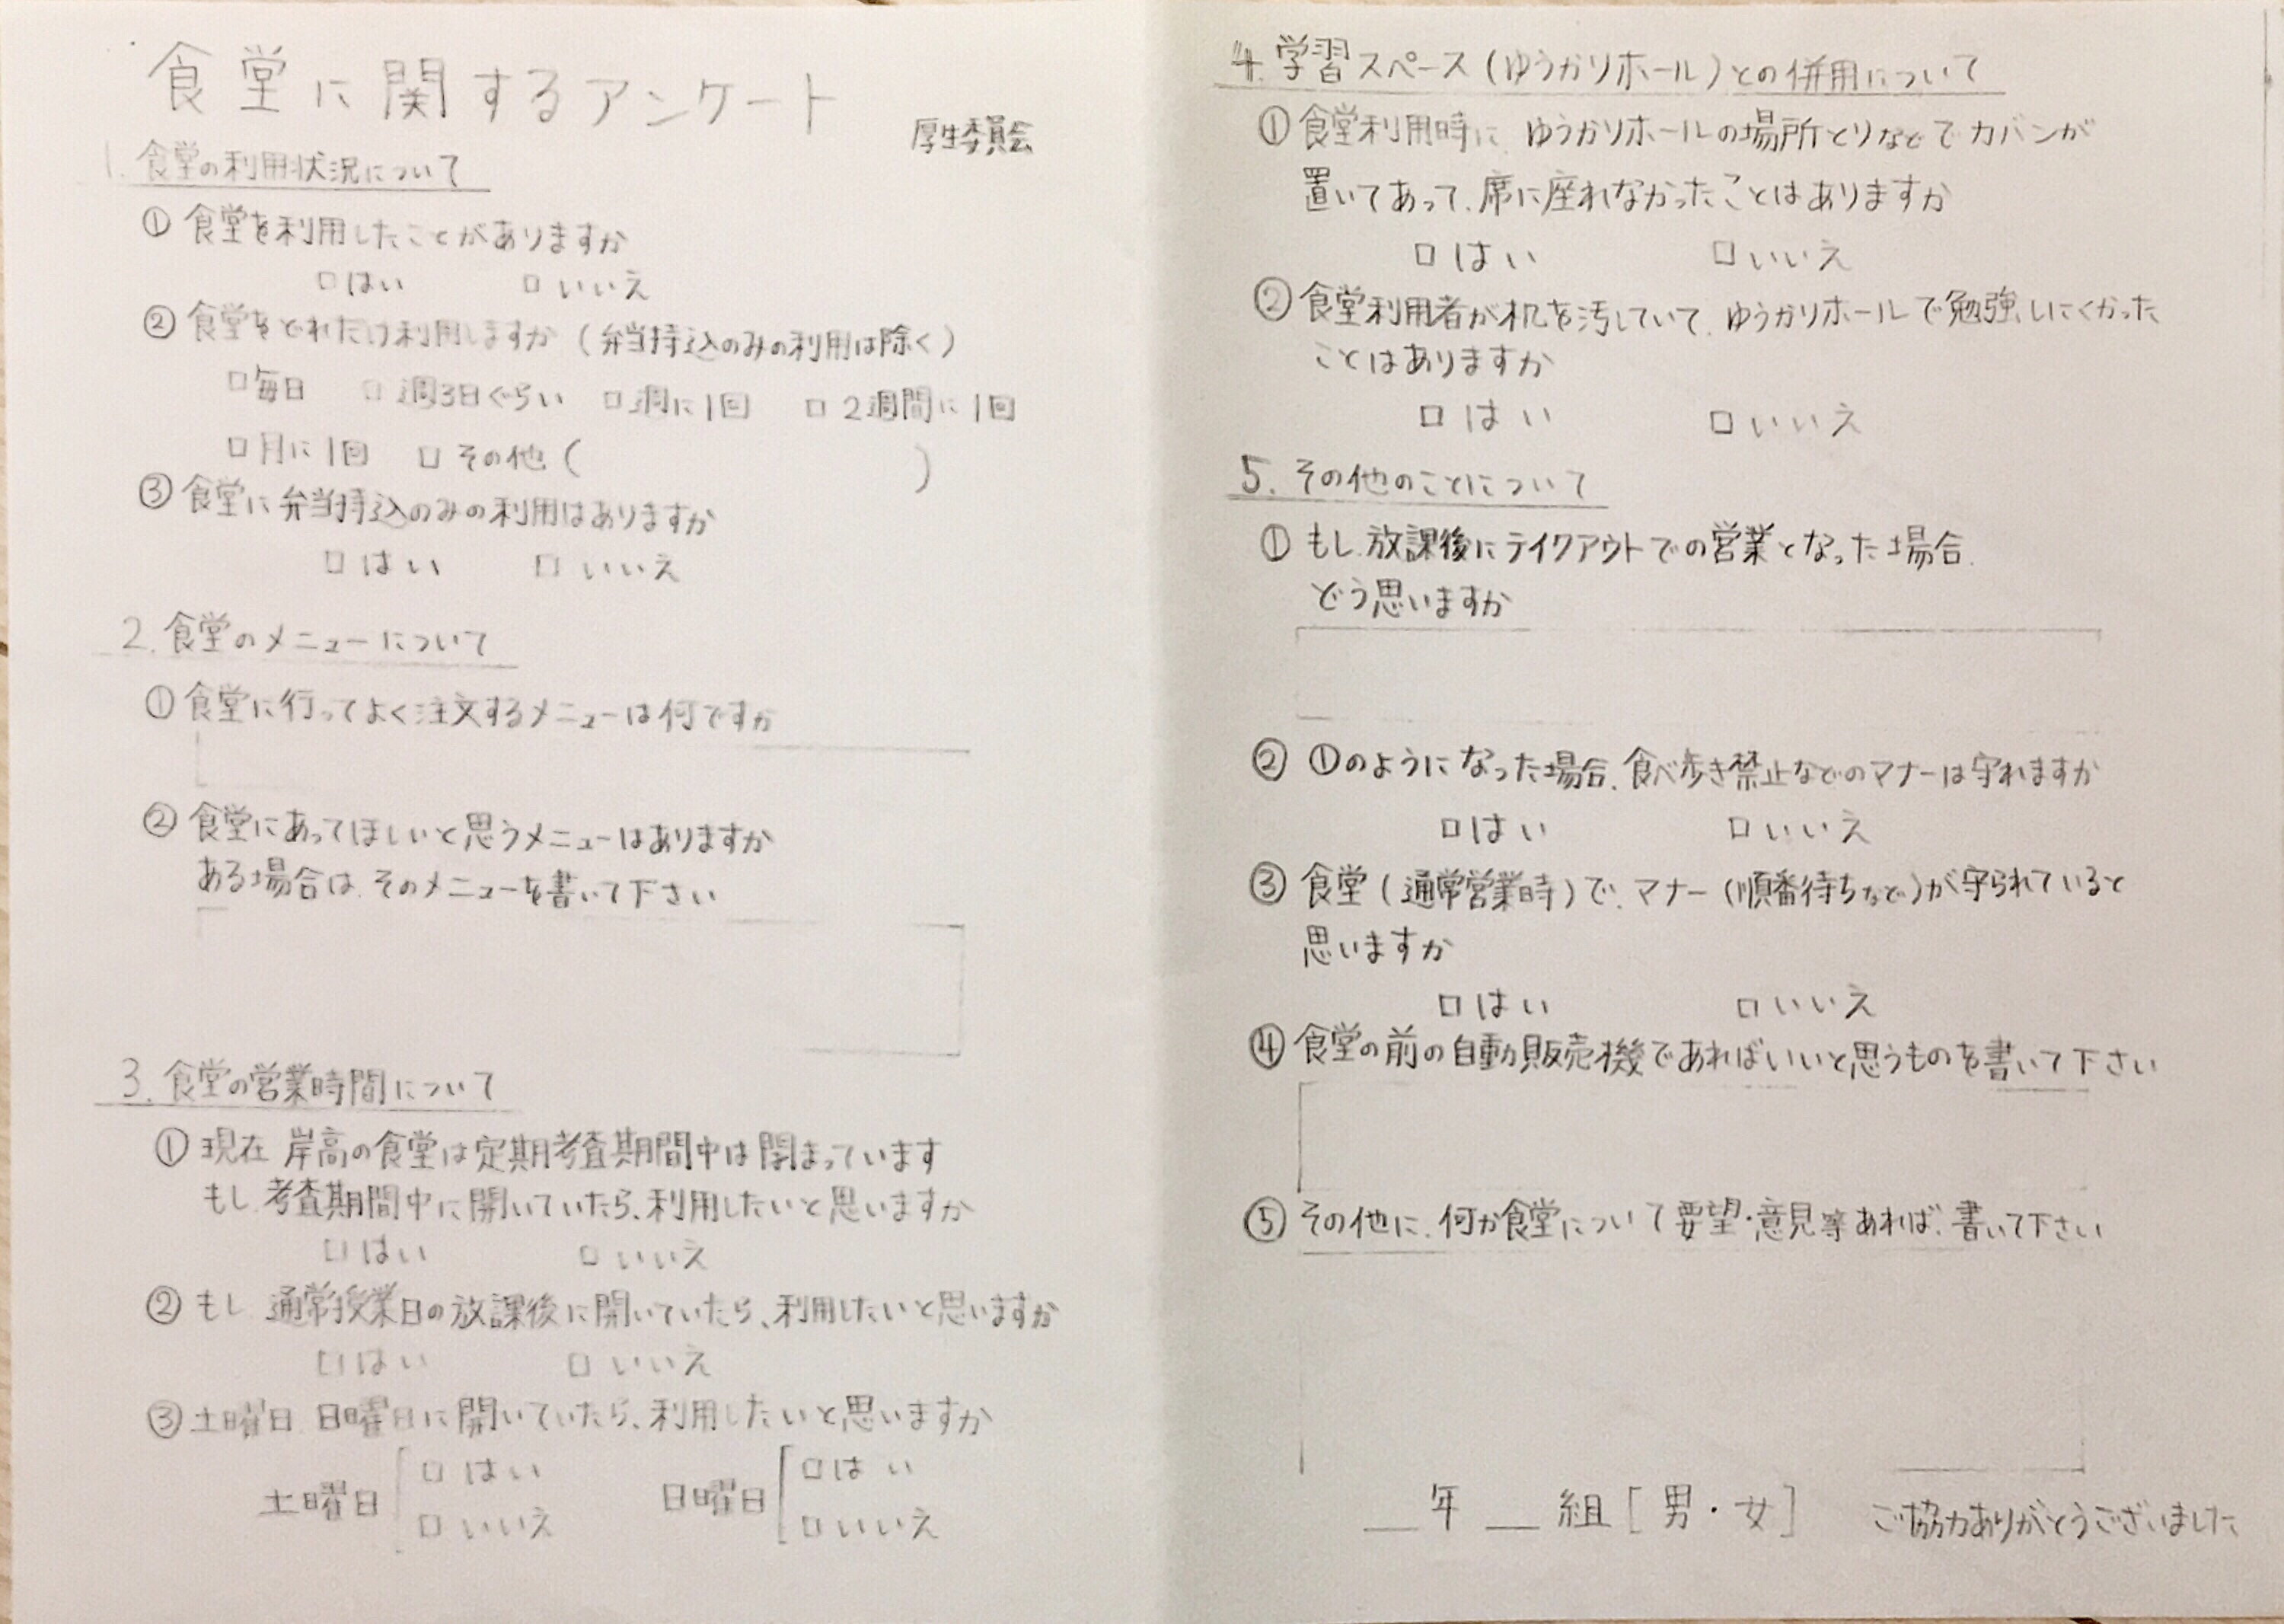 食堂に関するアンケート
厚生委員会
1. 食堂の利用状況について
① 食堂を利用したことがありますか
□はい □いいえ
② 食堂をどれだけ利用しますか (弁当持込のみの利用は除く)
□毎日 □週3日ぐらい □週に1回 □2週間に1回
□月に1回 □その他 ( )
③ 食堂に弁当持込のみの利用はありますか
□はい □いいえ
2. 食堂のメニューについて
① 食堂に行ってよく注文するメニューは何ですか
② 食堂にあってほしいと思うメニューはありますか
ある場合は、そのメニューを書いて下さい
3. 食堂の営業時間について
① 現在 岸高の食堂は定期考査期間中は閉まっています
もし、考査期間中に開いていたら、利用したいと思いますか
□はい □いいえ
② もし、通常授業日の放課後に開いていたら、利用したいと思いますか
□はい □いいえ
③ 土曜日、日曜日に開いていたら、利用したいと思いますか
土曜日 □はい 日曜日 □はい
□いいえ □いいえ
4. 学習スペース(ゆうかりホール)との併用について
① 食堂利用時に、ゆうかりホールの場所とりなどでカバンが
置いてあって、席に座れなかったことはありますか
□はい □いいえ
② 食堂利用者が机を汚していて、ゆうかりホールで勉強しにくかった
ことはありますか
□はい □いいえ
5. その他のことについて
① もし、放課後にテイクアウトでの営業となった場合、
どう思いますか
② ①のようになった場合、食べ歩き禁止などのマナーは守れますか
□はい □いいえ
③ 食堂(通常営業時)で、マナー(順番待ちなど)が守られていると
思いますか
□はい □いいえ
④ 食堂の前の自動販売機であればいいと思うものを書いて下さい
⑤ その他に、何か食堂について要望・意見等あれば、書いて下さい
__年 __組 [男・女] ご協力ありがとうございました